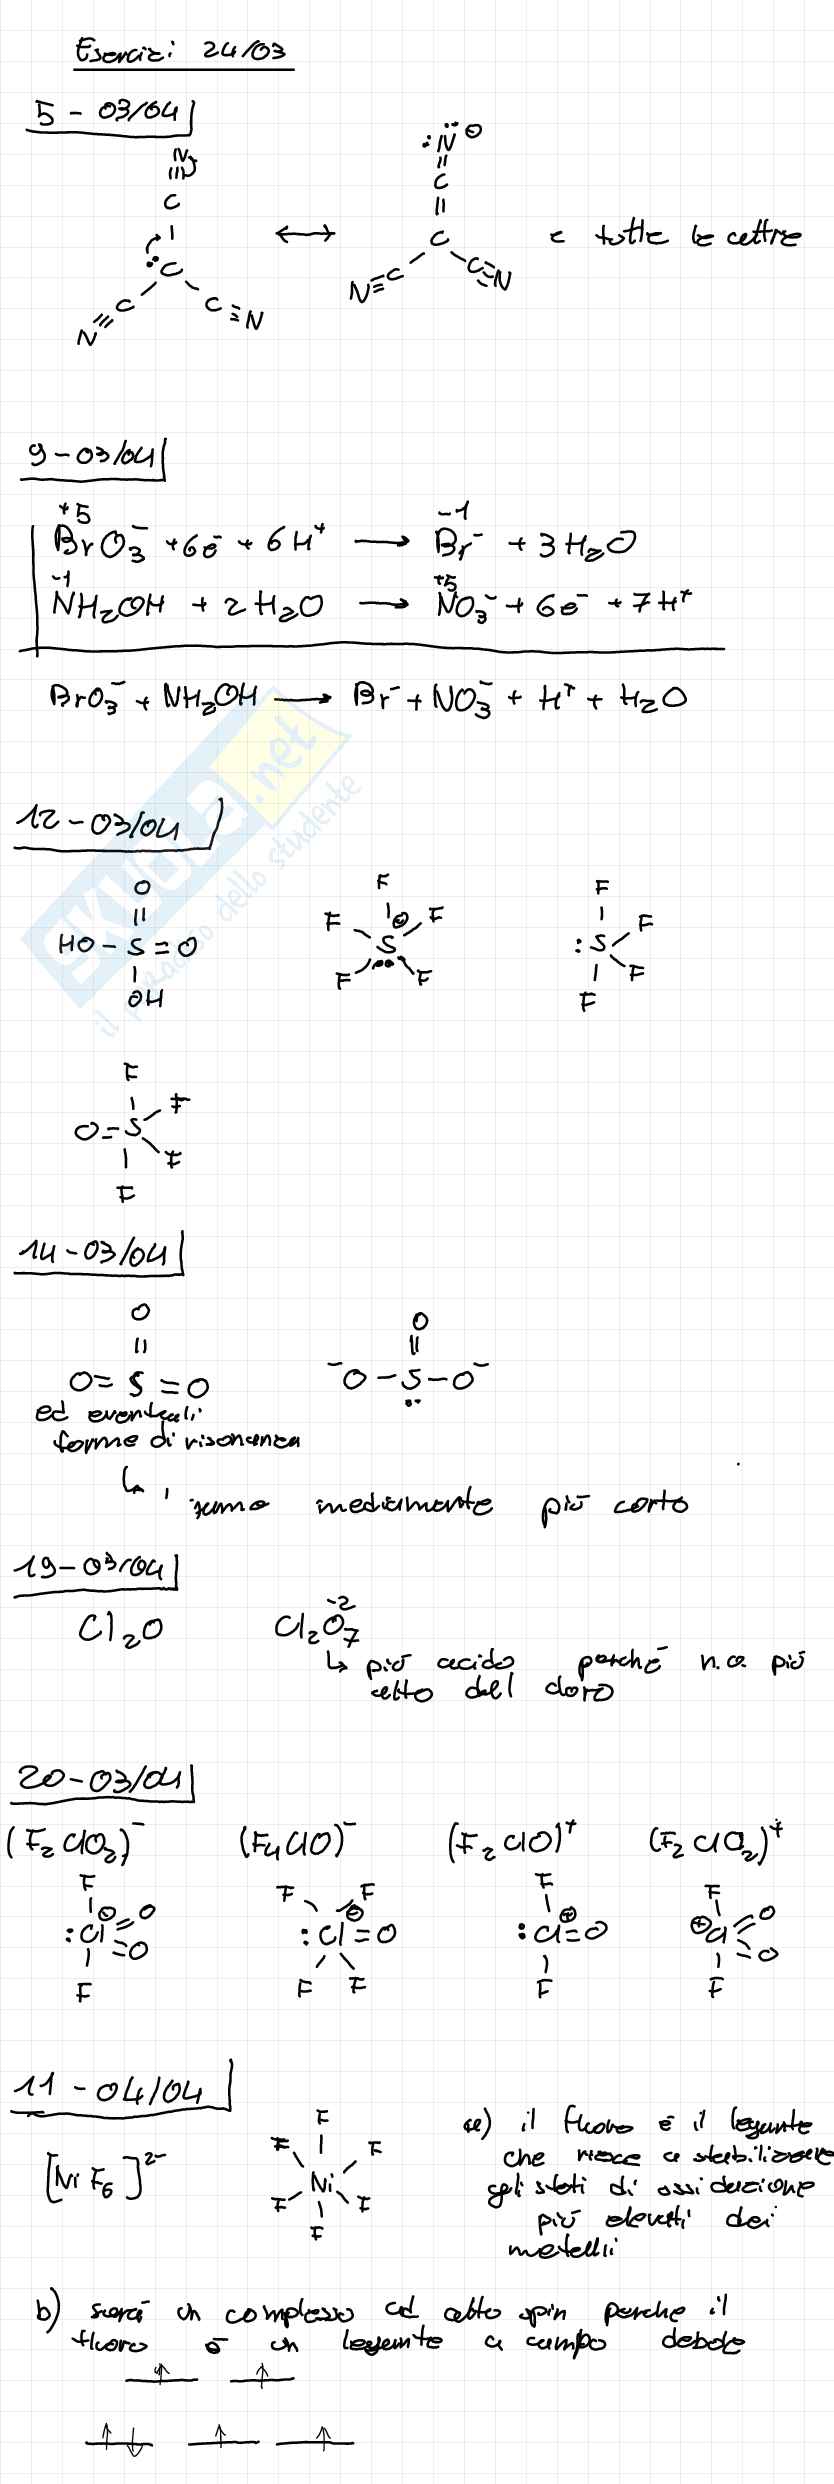 Esercizi 24/03
5 - 03/04
N
≡
C
:C
C C≡N
N≡
:N̈ ⊖
=
C
=
C
N≡C C≡N
e tutte le altre
9 - 03/04
+5 -1
BrO₃⁻ + 6e⁻ + 6H⁺ → Br⁻ + 3H₂O
-1 +5
NH₂OH + 2H₂O → NO₃⁻ + 6e⁻ + 7H⁺
BrO₃⁻ + NH₂OH → Br⁻ + NO₃⁻ + H⁺ + H₂O
SKUOLA.net
il paradiso dello studente
12 - 03/04
O F F
HO - S = O F ⊖ F :S F
OH S F
F F F
F
O=S F
F
F
14 - 03/04
O O
O = S = O ⁻O - S - O⁻
ed eventuali
forme di risonanza
↳ , sono mediamente più corto
19 - 03/04
Cl₂O Cl₂O₇ -2
↳ più acido perché n.o. più
alto del cloro
20 - 03/04
(F₂ClO₂)⁻ (F₄ClO)⁻ (F₂ClO)⁺ (F₂ClO₂)⁺
F F F F F
:Cl ⊖ =O =O :Cl ⊖ =O :Cl ⊕ =O ⊕ Cl =O =O
F F F F F
11 - 04/04
[NiF₆]²⁻
F
F F
Ni
F F
F
a) il fluoro è il legante
che riesce a stabilizzare
gli stati di ossidazione
più elevati dei
metalli
b) sarà un complesso ad alto spin perche il
fluoro è un legante a campo debole
↑ ↑
↑↓ ↑ ↑